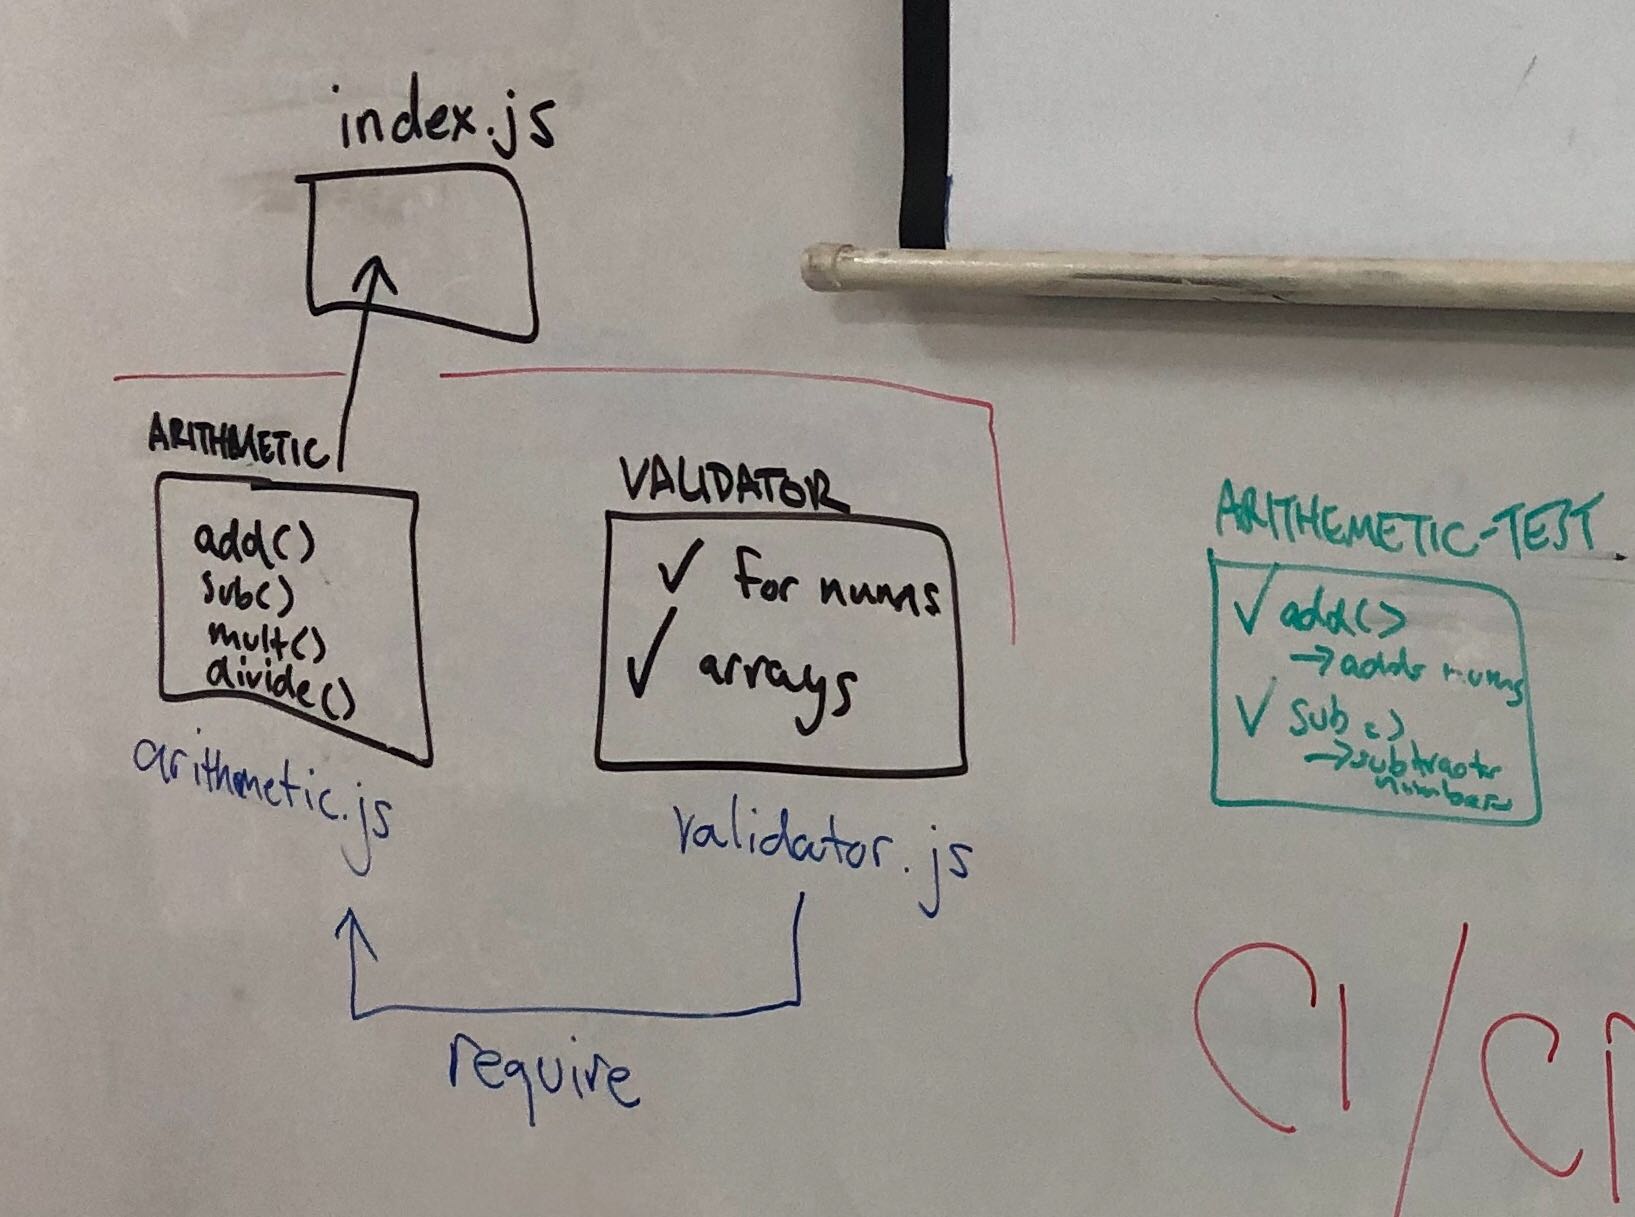 index.js
ARITHMETIC
add()
sub()
mult()
divide()
arithmetic.js
VALIDATOR
✓ for nums
✓ arrays
validator.js
require
ARITHEMETIC-TEST
✓ add()
→ adds nums
✓ sub()
→ subtracts
numbers
CI/C